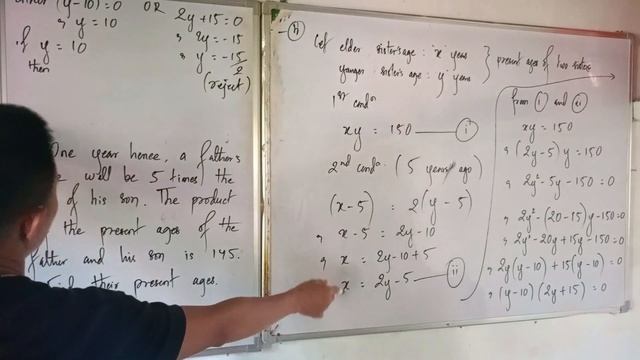 (y-10) = 0 OR 2y+15=0
y = 10
2y = -15
If y = 10
y = -15/2
then
(reject)
One year hence, a father's
will be 5 times the
of his son. The product
the present ages of the
father and his son is 145.
their present ages.
Let elder sister's age : 'x' years
younger sister's age : 'y' years
present ages of two sisters
1st condn
xy = 150 (i)
2nd condn (5 years ago)
(x-5) = 2(y-5)
x-5 = 2y-10
x = 2y-10+5
x = 2y-5 (ii)
from (i) and (ii)
xy = 150
(2y-5)y = 150
2y²-5y-150 = 0
2y²-(20-15)y-150=0
2y²-20y+15y-150=0
2y(y-10)+15(y-10)=0
(y-10)(2y+15) = 0